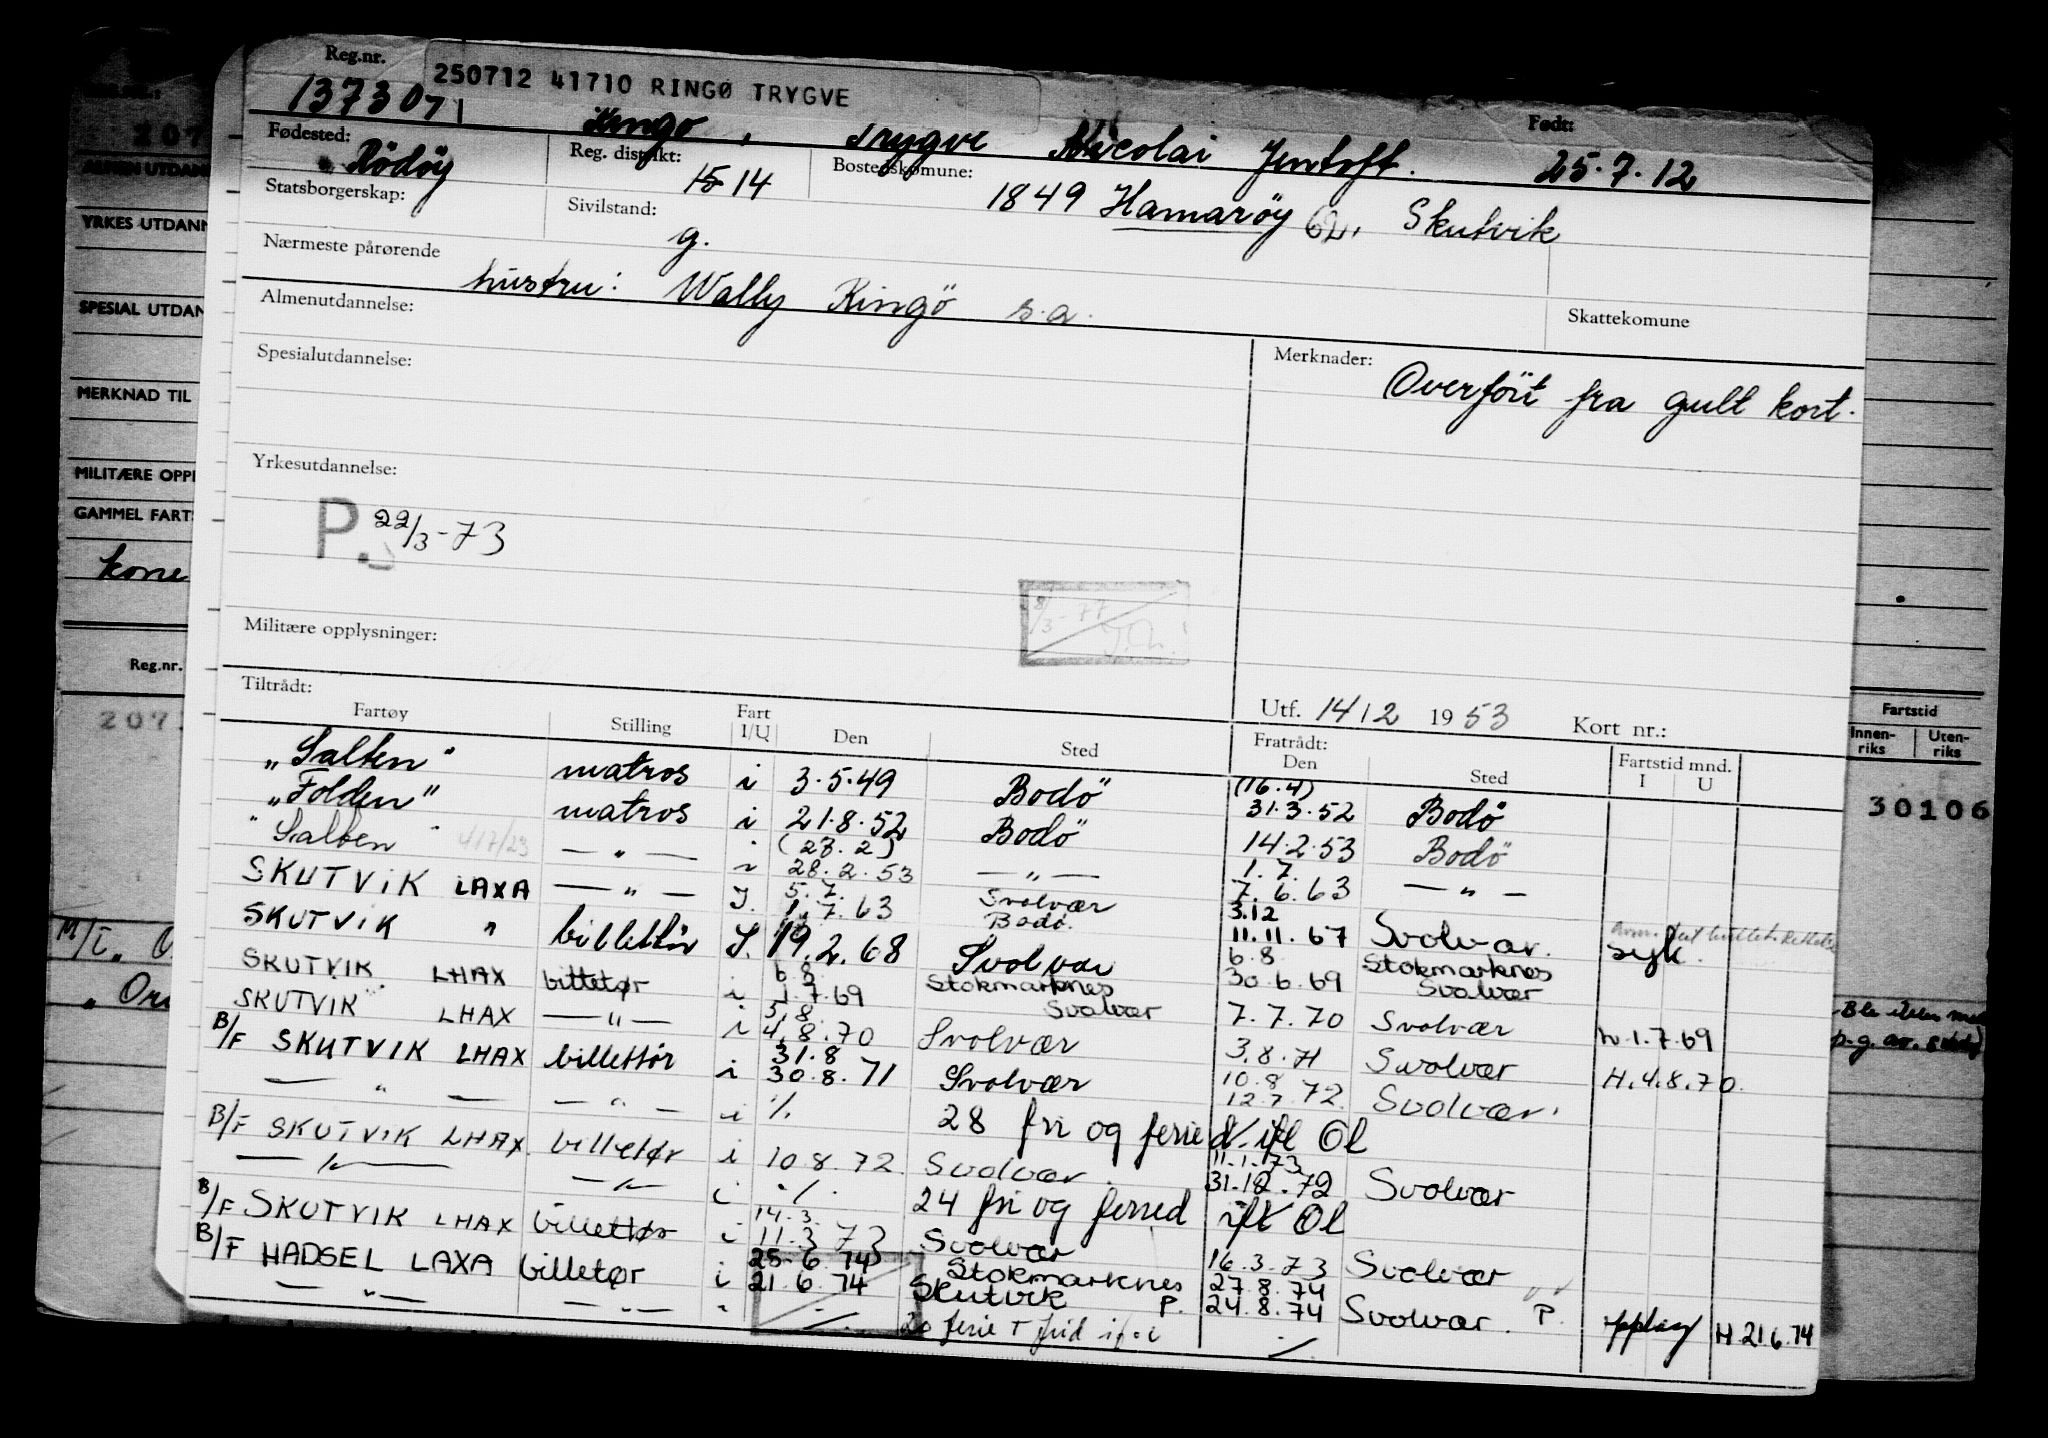 Reg.nr.
250712 41710 RINGØ TRYGVE
1373071
Ringø, Trygve Nicolai Jentoft.
Født:
25.7.12
Fødested:
Rödöy
Reg. distrikt:
15 14
Bostedskomune:
1849 Hamaröy 62, Skutvik
Statsborgerskap:
Sivilstand:
g.
Nærmeste pårørende
hustru: Wally Ringö s.a.
Almenutdannelse:
Skattekomune
Spesialutdannelse:
Merknader:
Overfört fra gult kort.
Yrkesutdannelse:
P. 22/3-73
8/3-77
Militære opplysninger:
Tiltrådt:
Utf. 14/12 1953 Kort nr.:
Fartøy Stilling Fart I/U Den Sted Fratrådt: Den Sted Fartstid mnd. I U
"Salten" matros i 3.5.49 Bodö (16.4) 31.3.52 Bodö
"Folden" matros i 21.8.52 Bodö 14.2.53 Bodö
"Salten" — " — i (23.2) 28.2.53 — " — 1.7. 7.6.63 — " —
SKUTVIK LAXA — " — I. 5.7. 1.7.63 Svolvær Bodø. 3.12 11.11.67 Svolvær. syk.
SKUTVIK " billettör I. 19.2.68 Svolvær 6.8 30.6.69 Stokmarknes Svolvær
SKUTVIK LHAX billetør i 6.8. 1.7.69 Stokmarknes Svolvær 7.7.70 Svolvær h.1.7.69
SKUTVIK LHAX — " — i 5.8. 4.8.70 Svolvær 3.8.71 Svolvær H.4.8.70.
B/F SKUTVIK LHAX billettør i 31.8 30.8.71 Svolvær 10.8 12.7.72 Svolvær.
— " — — " — i ./. 28 fri og ferie d. ifl Ol
B/F SKUTVIK LHAX billetør i 10.8.72. Svolvær. 11.1.73 31.12.72 Svolvær
— " — — " — i ./. 24 fri og feried ifl Ol
B/F SKUTVIK LHAX billettør i 14.3. 11.3.73 Svolvær 16.3.73 Svolvær
B/F HADSEL LAXA billetør i 25.6.74 21.6.74 Stokmarknes Skutvik P. 27.8.74 24.8.74 Svolvær. P. H.21.6.74
— " — — " — ./. 20 ferie + frid ./.
YRKES UTDANN
SPESIAL UTDAN
MERKNAD TIL
MILITÆRE OPPL
GAMMEL FARTS
kone
Reg.nr.
207
Fartstid
Innen-riks
Uten-riks
30106
M/T.